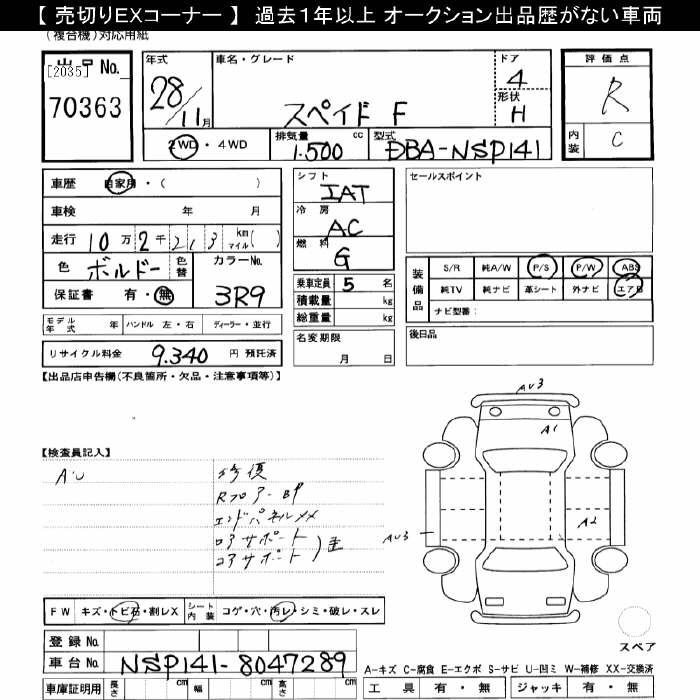 【 売切りEXコーナー 】 過去１年以上 オークション出品歴がない車両
(複合機)対応用紙
出品 No.
[2035]
70363
年式
28/11月
車名・グレード
スペイド F
ドア
4
形状
H
評価点
R
内装
C
2WD・4WD
排気量 1.500 cc
型式 DBA-NSP141
車歴 自家用・( )
車検 年 月
走行 10万2千213 km マイル( )
色 ボルドー 色替
カラーNo. 3R9
保証書 有・無
シフト
IAT
冷房
AC
燃料
G
乗車定員 5 名
積載量 kg
総重量 kg
セールスポイント
装備品
S/R 純A/W P/S P/W ABS
純TV 純ナビ 革シート 外ナビ エアB
ナビ型番：
モデル年式 年 ハンドル 左・右 ディーラー・並行
リサイクル料金 9.340 円 預託済
名変期限
月 日
後日品
【出品店申告欄(不良箇所・欠品・注意事項等)】
【検査員記入】
AU
修復
Rフロアー BP
エンドパネルXX
ロアサポート
コアサポート
AU3
A1
A2
AU3
FW キズ・トビ石・割レX
シート内装 コゲ・穴・汚レ・シミ・破レ・スレ
登録 No.
車台 No. NSP141-8047289
車庫証明用 長さ cm 幅 cm 高さ cm
スペア
A-キズ C-腐食 E-エクボ S-サビ U-凹ミ W-補修 XX-交換済
工具 有・無 ジャッキ 有・無